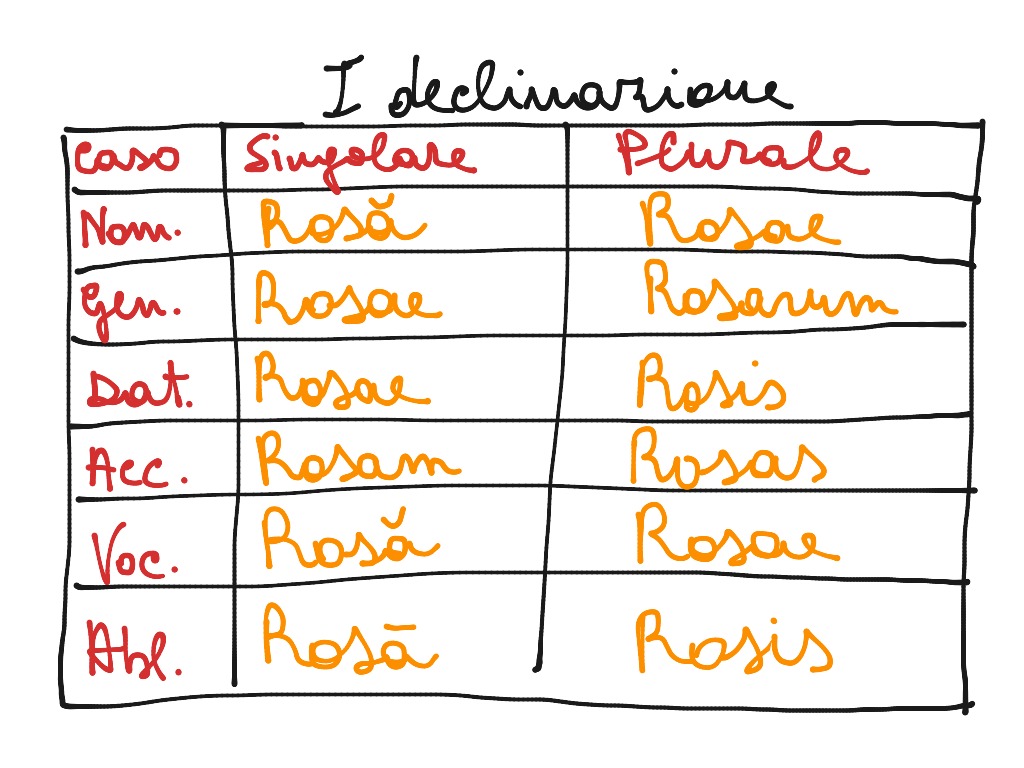 I declinazione
Caso Singolare Plurale
Nom. Rosă Rosae
Gen. Rosae Rosarum
Dat. Rosae Rosis
Acc. Rosam Rosas
Voc. Rosă Rosae
Abl. Rosā Rosis